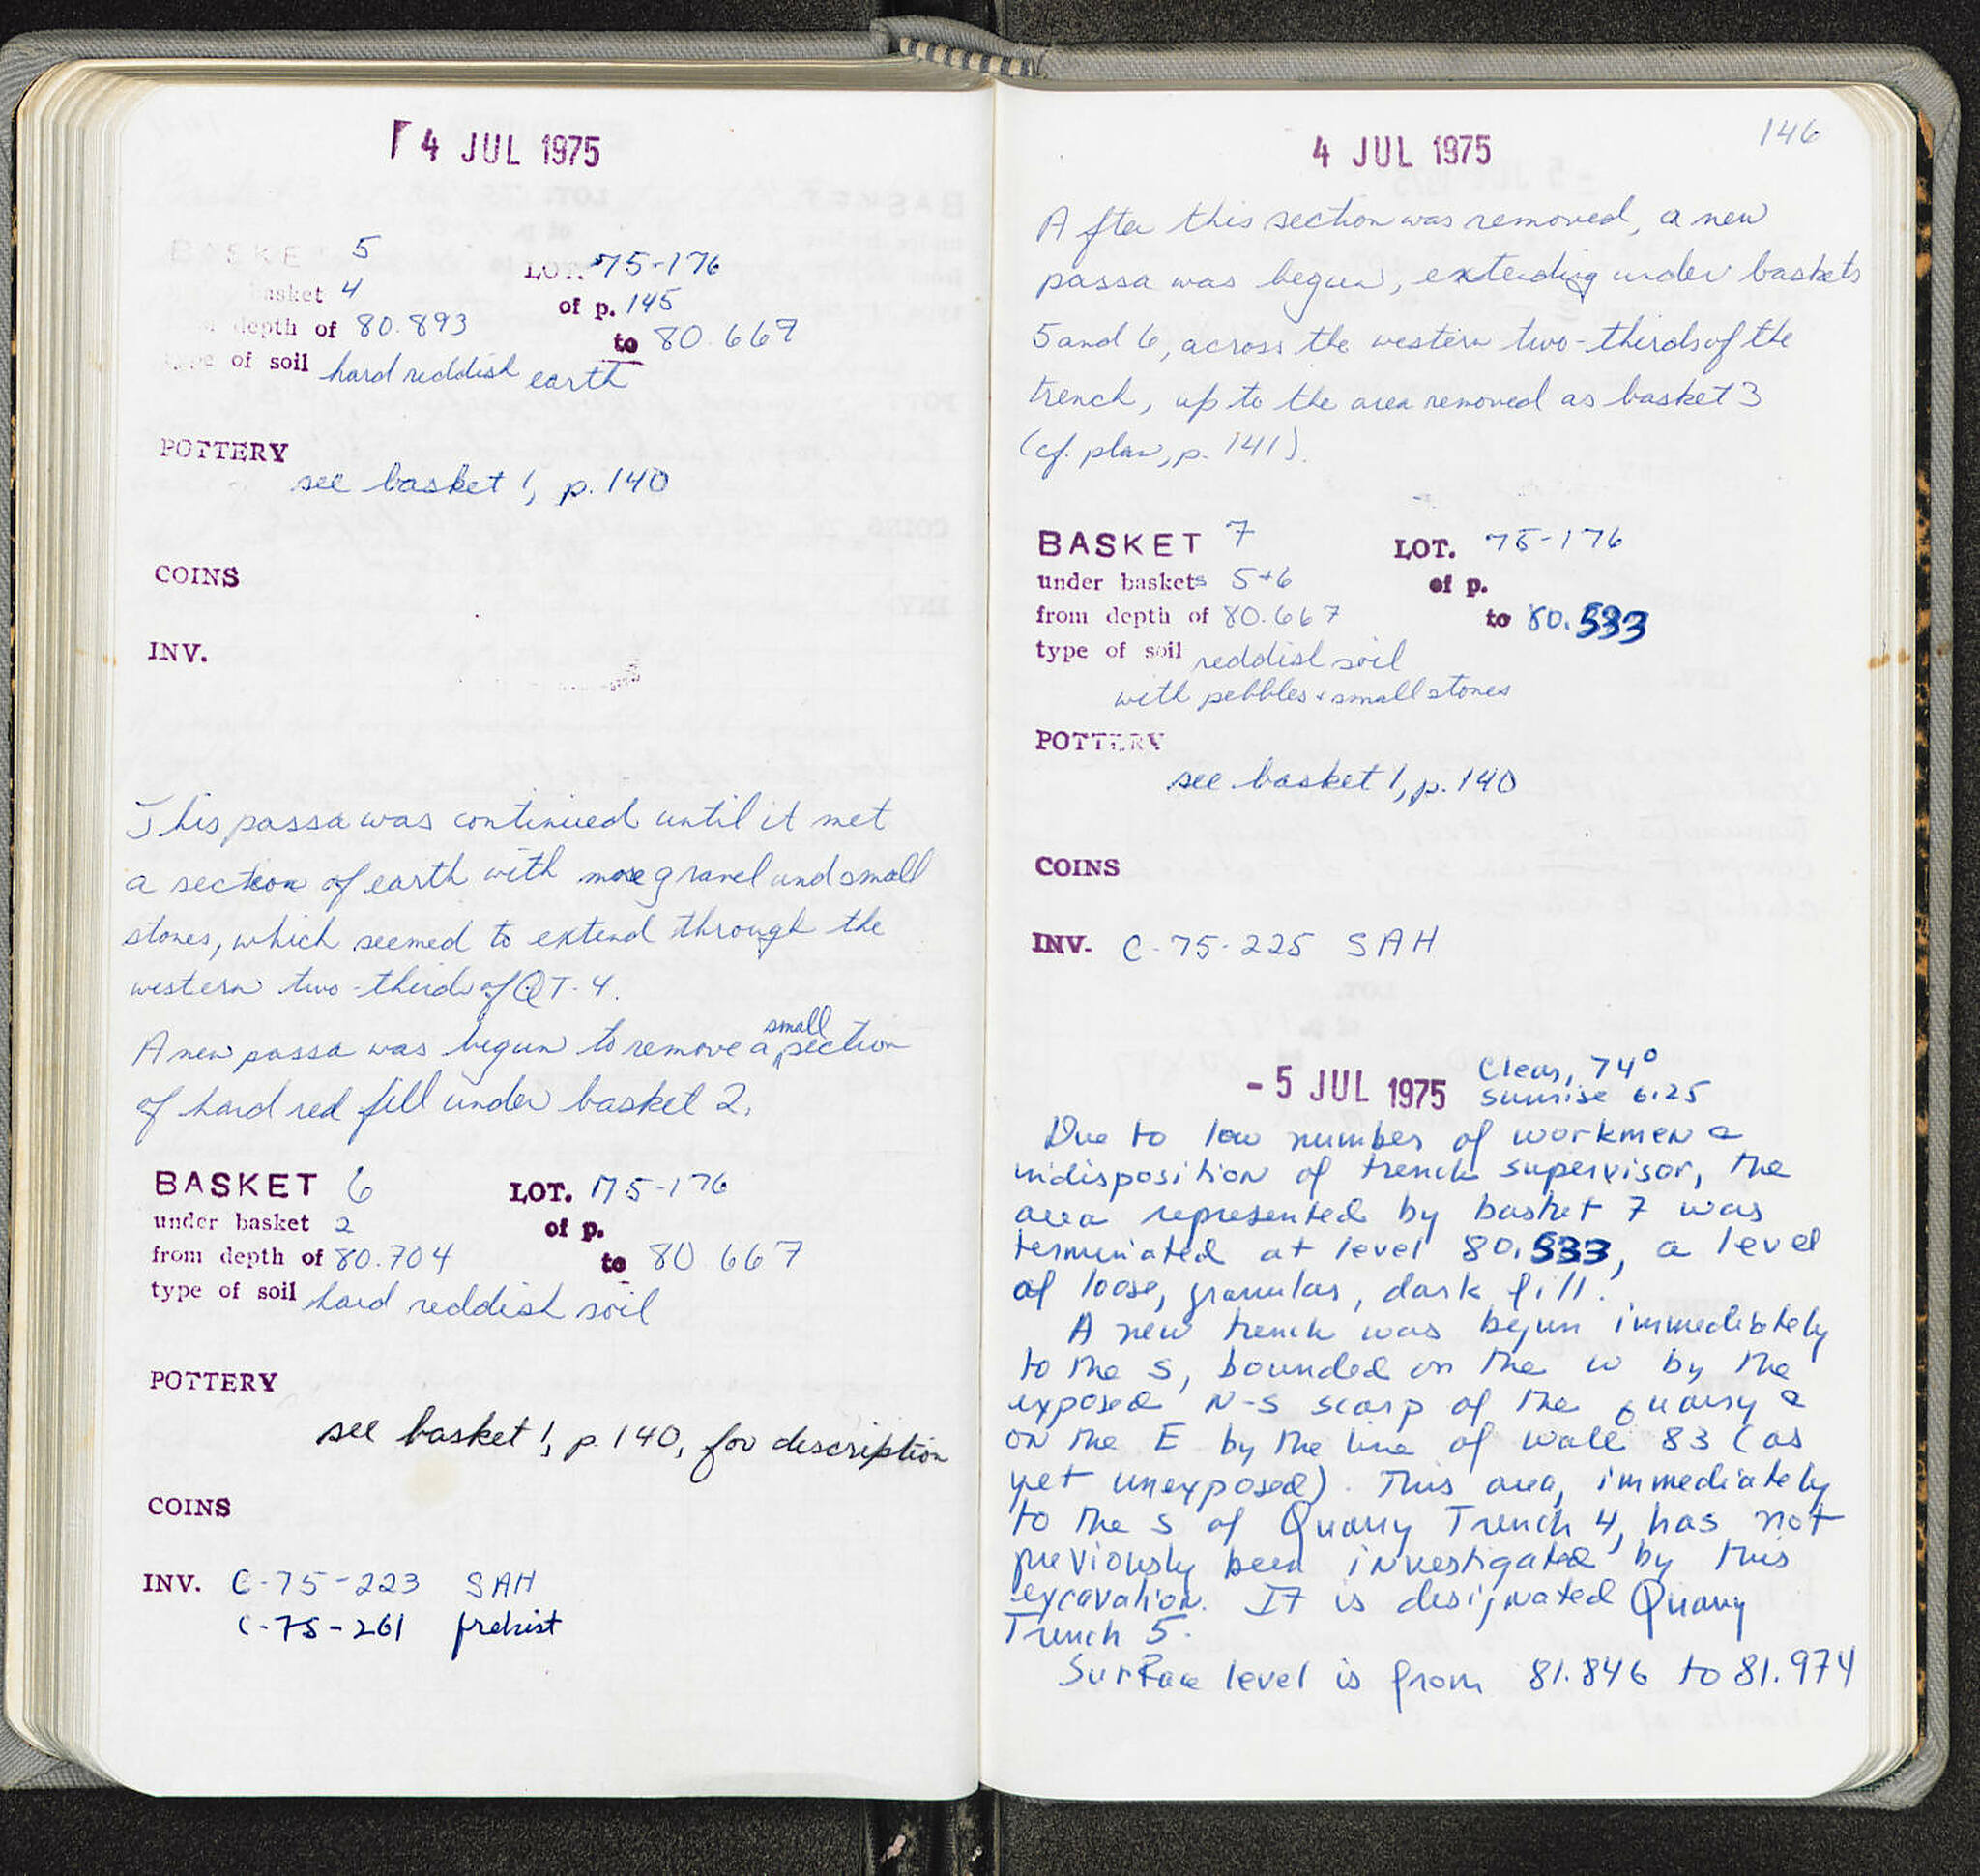 4 JUL 1975
BASKE 5 LOT. 75-176
basket 4 of p. 145
depth of 80.893 to 80.667
type of soil hard reddish earth
POTTERY
see basket 1, p. 140
COINS
INV.
This passa was continued until it met
a section of earth with more gravel and small
stones, which seemed to extend through the
western two-thirds of QT-4.
A new passa was begun to remove a small section
of hard red fill under basket 2.
BASKET 6 LOT. 75-176
under basket 2 of p.
from depth of 80.704 to 80.667
type of soil hard reddish soil
POTTERY
see basket 1, p. 140, for description
COINS
INV. C-75-223 SAH
C-75-261 prehist
4 JUL 1975 146
After this section was removed, a new
passa was begun, extending under baskets
5 and 6, across the western two-thirds of the
trench, up to the area removed as basket 3
(cf. plan, p. 141).
BASKET 7 LOT. 75-176
under baskets 5+6 of p.
from depth of 80.667 to 80.533
type of soil reddish soil
with pebbles + small stones
POTTERY
see basket 1, p. 140
COINS
INV. C-75-225 SAH
- 5 JUL 1975 Clear, 74°
Sunrise 6:25
Due to low number of workmen &
indisposition of trench supervisor, the
area represented by basket 7 was
terminated at level 80.533, a level
of loose, granular, dark fill.
A new trench was begun immediately
to the S, bounded on the W by the
exposed N-S scarp of the quarry &
on the E by the line of wall 83 (as
yet unexposed). This area, immediately
to the S of Quarry Trench 4, has not
previously been investigated by this
excavation. It is designated Quarry
Trench 5.
Surface level is from 81.846 to 81.974